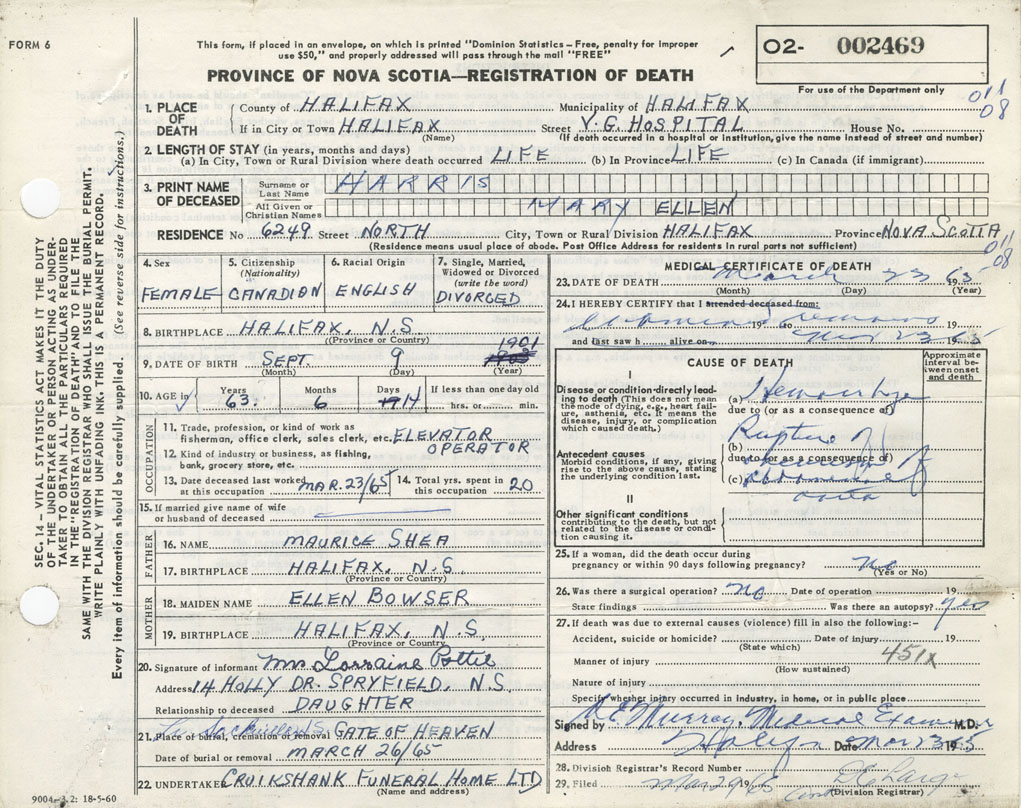 FORM 6
This form, if placed in an envelope, on which is printed "Dominion Statistics – Free, penalty for improper
use $50," and properly addressed will pass through the mail "FREE"
PROVINCE OF NOVA SCOTIA—REGISTRATION OF DEATH
O2- 002469
For use of the Department only
011
08
1. PLACE OF DEATH
County of HALIFAX Municipality of HALIFAX
If in City or Town HALIFAX Street V.G. HOSPITAL House No.
(Name) (If death occurred in a hospital or institution, give the name instead of street and number)
2. LENGTH OF STAY (in years, months and days)
(a) In City, Town or Rural Division where death occurred LIFE (b) In Province LIFE (c) In Canada (if immigrant)
3. PRINT NAME OF DECEASED
Surname or Last Name HARRIS
All Given or Christian Names MARY ELLEN
RESIDENCE No 6249 Street NORTH City, Town or Rural Division HALIFAX Province NOVA SCOTIA
(Residence means usual place of abode. Post Office Address for residents in rural parts not sufficient)
011
08
4. Sex FEMALE
5. Citizenship (Nationality) CANADIAN
6. Racial Origin ENGLISH
7. Single, Married, Widowed or Divorced (write the word) DIVORCED
8. BIRTHPLACE HALIFAX, N.S
(Province or Country)
1901
9. DATE OF BIRTH SEPT. 9
(Month) (Day) (Year)
10. AGE in Years 63. Months 6 Days 14 If less than one day old hrs. or min.
OCCUPATION
11. Trade, profession, or kind of work as
fisherman, office clerk, sales clerk, etc. ELEVATOR
OPERATOR
12. Kind of industry or business, as fishing,
bank, grocery store, etc.
13. Date deceased last worked at this occupation MAR. 23/65
14. Total yrs. spent in this occupation 20
15. If married give name of wife
or husband of deceased
FATHER
16. NAME MAURICE SHEA
17. BIRTHPLACE HALIFAX, N.S
(Province or Country)
MOTHER
18. MAIDEN NAME ELLEN BOWSER
19. BIRTHPLACE HALIFAX, N.S.
(Province or Country)
20. Signature of informant Mrs Lorraine Pottie
Address 14 HOLLY DR. SPRYFIELD, N.S.
Relationship to deceased DAUGHTER
21. Place of burial, cremation or removal GATE OF HEAVEN
Date of burial or removal MARCH 26/65
22. UNDERTAKER CRUIKSHANK FUNERAL HOME LTD
(Name and address)
9004- 3.2: 18-5-60
MEDICAL CERTIFICATE OF DEATH
23. DATE OF DEATH March 23 1965
(Month) (Day) (Year)
24. I HEREBY CERTIFY that I attended deceased from:
19 to 19
and last saw h alive on 23 1965
CAUSE OF DEATH
Approximate interval between onset and death
I
Disease or condition directly leading to death (This does not mean the mode of dying, e.g., heart failure, asthenia, etc. It means the disease, injury, or complication which caused death.)
(a) Hemorrhage
due to (or as a consequence of)
Rupture of
Antecedent causes
Morbid conditions, if any, giving rise to the above cause, stating the underlying condition last.
(b)
due to (or as a consequence of)
(c) abdominal
aorta
II
Other significant conditions
contributing to the death, but not related to the disease or condition causing it.
25. If a woman, did the death occur during
pregnancy or within 90 days following pregnancy? No
(Yes or No)
26. Was there a surgical operation? No Date of operation 19
State findings Was there an autopsy? yes
27. If death was due to external causes (violence) fill in also the following:–
Accident, suicide or homicide? Date of injury 19
(State which)
451X
Manner of injury
(How sustained)
Nature of injury
Specify whether injury occurred in industry, in home, or in public place
Signed by Murray, Medical Examiner M.D.
Address Halifax Date Mar 23 1965
28. Division Registrar's Record Number
29. Filed Mar 29/65
(Division Registrar)
SEC. 14 – VITAL STATISTICS ACT MAKES IT THE DUTY
OF THE UNDERTAKER OR PERSON ACTING AS UNDER-
TAKER TO OBTAIN ALL THE PARTICULARS REQUIRED
IN THE "REGISTRATION OF DEATH" AND TO FILE THE
SAME WITH THE DIVISION REGISTRAR WHO SHALL ISSUE THE BURIAL PERMIT.
WRITE PLAINLY WITH UNFADING INK. THIS IS A PERMANENT RECORD.
Every item of information should be carefully supplied. (See reverse side for instructions.)